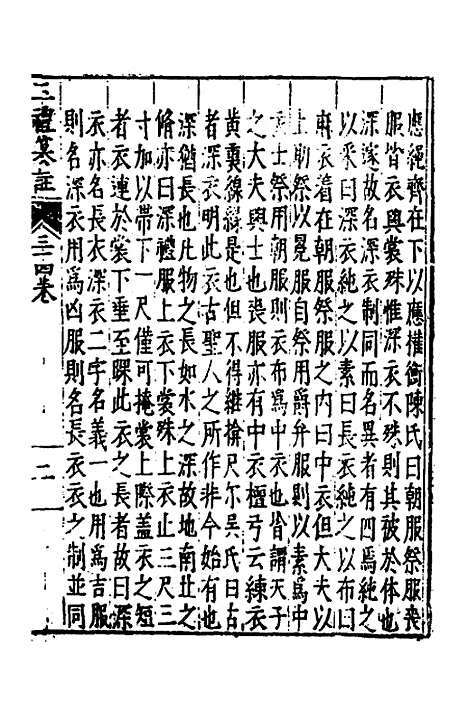 應繩齊在下以應權衡陳氏曰朝服祭服喪
服皆衣與裳殊惟深衣不殊則其被於體也
深邃故名深衣制同而名異者有四焉純之
以采曰深衣純之以素曰長衣純之以布曰
麻衣着在朝服祭服之内曰中衣但大夫以
上助祭以冕服自祭用爵弁服則以素爲中
衣士祭用朝服則衣布爲中衣也皆謂天子
之大夫與士也喪服亦有中衣檀弓云練衣
黄裏縓緣是也但不得繼揜尺尔吴氏曰古
者深衣明此衣古聖人之所作非今始有也
深猶長也凡物之長如水之深故地南北之
脩亦曰深禮服上衣下裳殊上衣止三尺三
寸加以帶下一尺僅可掩裳上際蓋衣之短
者衣連於裳下垂至踝此衣之長者故曰深
衣亦名長衣深衣二字名義一也用爲吉服
則名深衣用爲凶服則名長衣衣之制並同
三禮纂註
三十四卷
二